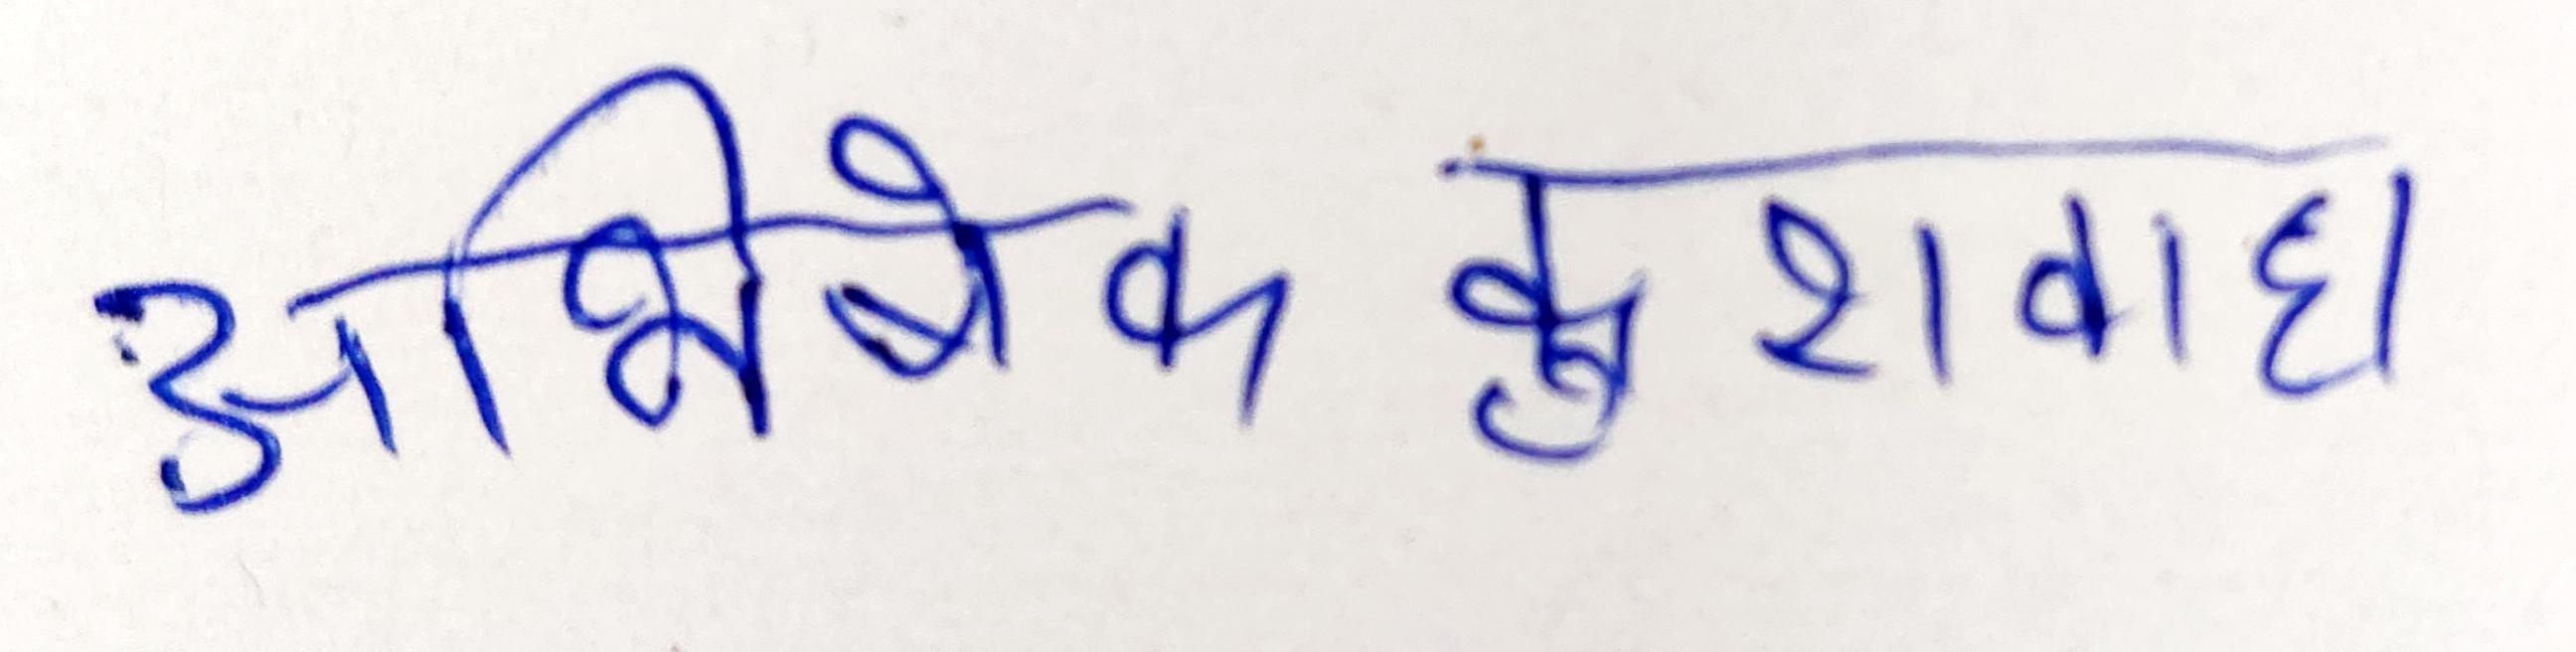 अभिषेक कुशवाहा